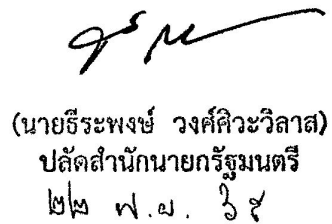 (นายธีระพงษ์ วงศ์ศิวะวิลาส)
ปลัดสำนักนายกรัฐมนตรี
๒๒ พ.ย. ๖๙